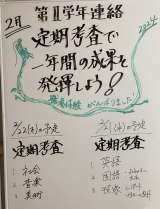 2月
第Ⅱ学年連絡
2024
定期考査で
一年間の成果を
発揮しよう!
職場体験 がんばりました!
2/22(木)の予定
定期考査
1. 社会
2. 音楽
3. 美術
2/21(水)の予定
定期考査
1. 英語
2. 国語
3. 理科